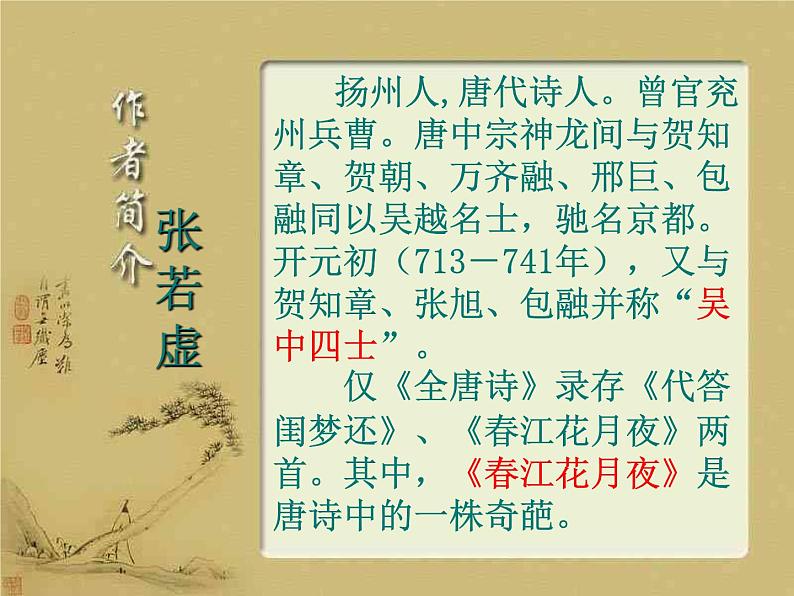 作者简介
张若虚
扬州人,唐代诗人。曾官兖
州兵曹。唐中宗神龙间与贺知
章、贺朝、万齐融、邢巨、包
融同以吴越名士，驰名京都。
开元初（713－741年），又与
贺知章、张旭、包融并称“吴
中四士”。
仅《全唐诗》录存《代答
闺梦还》、《春江花月夜》两
首。其中，《春江花月夜》是
唐诗中的一株奇葩。